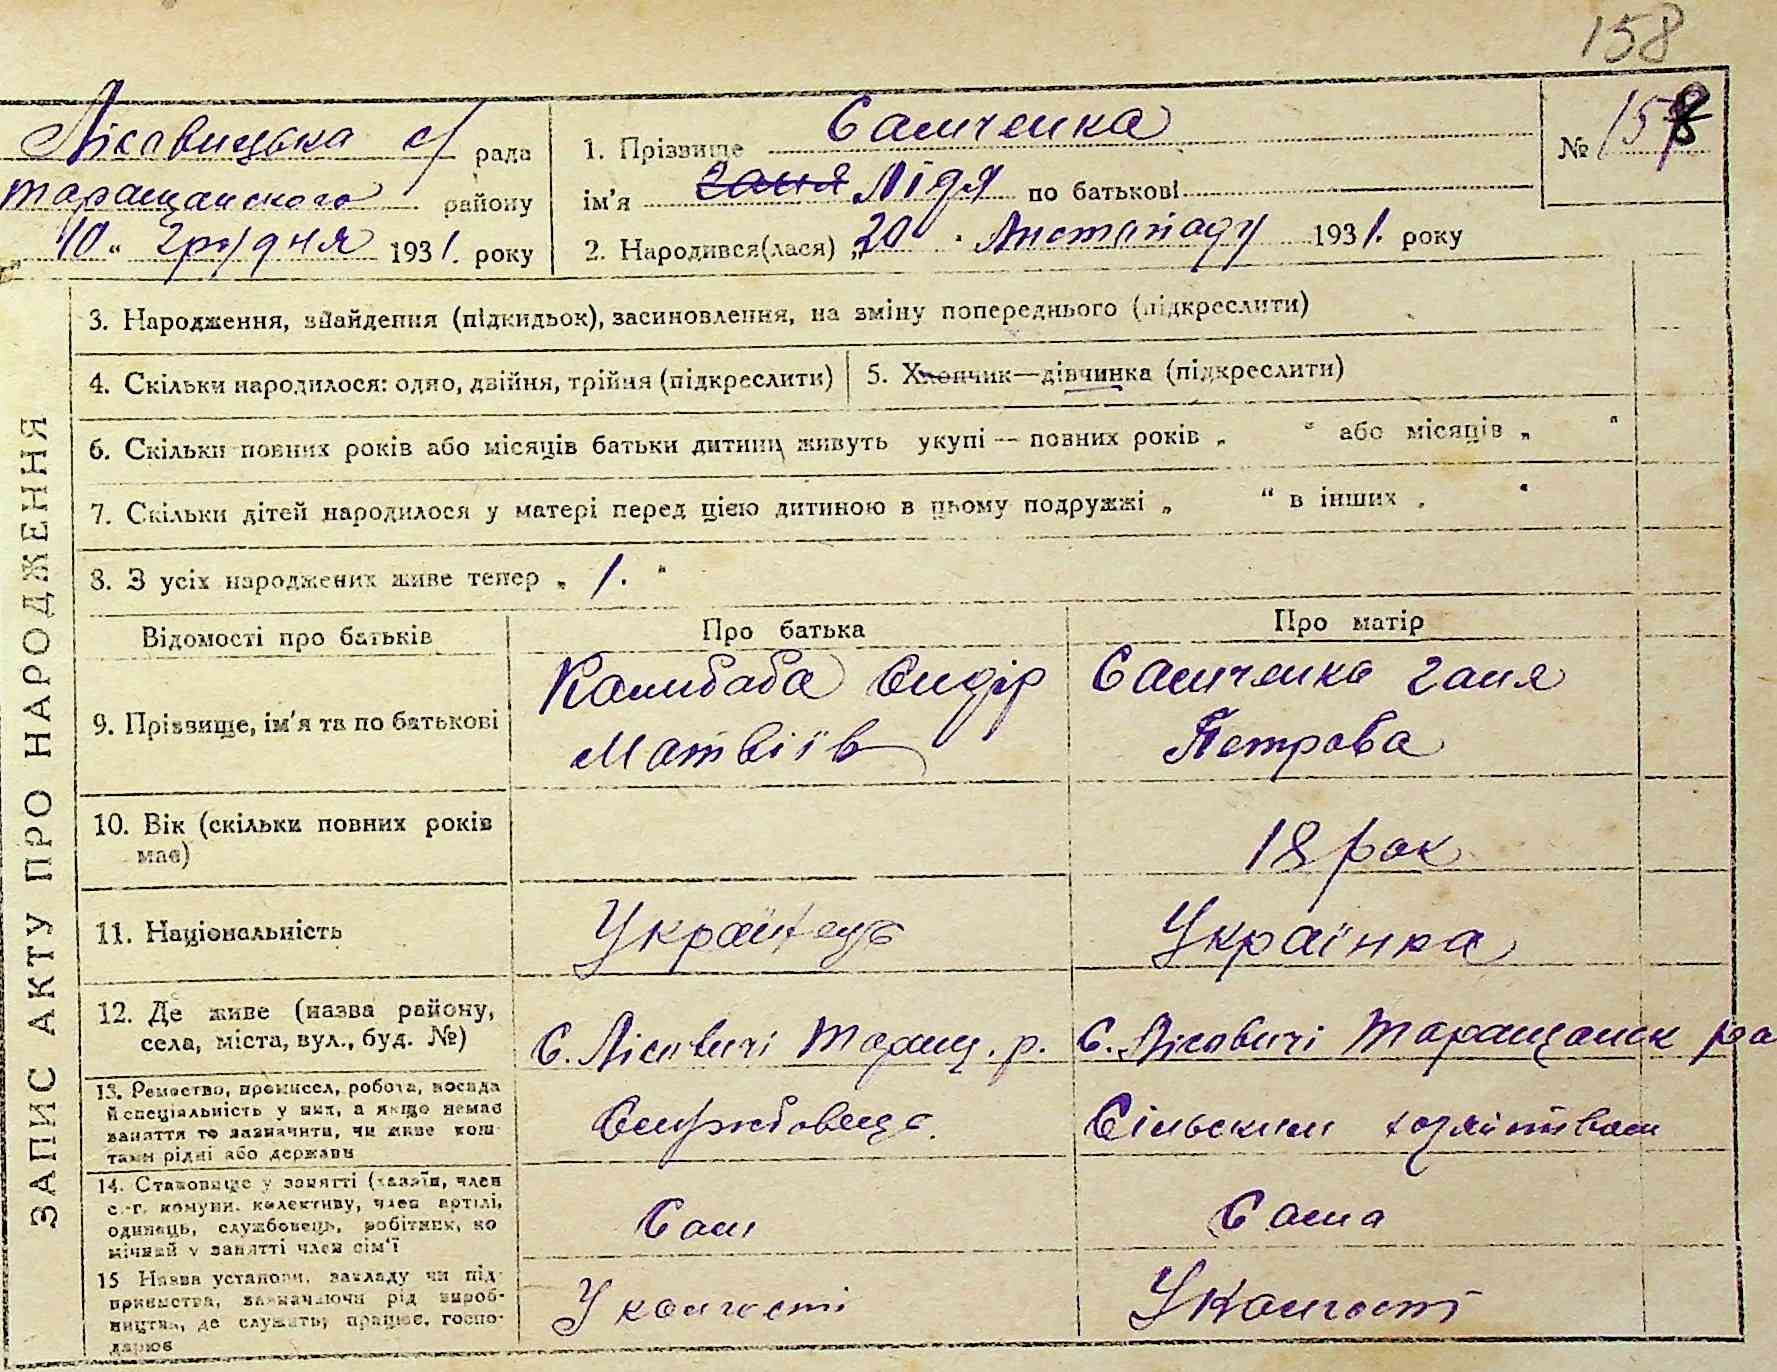 158
Лісовицька с/ рада
Таращанского району
„10“ грудня 1931. року
1. Прізвище Самченка
ім'я Ганя Лідя по батькові
2. Народився(лася) „20 “ Листопаду 1931. року
№ 158
ЗАПИС АКТУ ПРО НАРОДЖЕННЯ
3. Народження, знайдення (підкидьок), засиновлення, на зміну попереднього (підкреслити)
4. Скільки народилося: одно, двійня, трійня (підкреслити)
5. Хлопчик—дівчинка (підкреслити)
6. Скільки повних років або місяців батьки дитини живуть укупі — повних років „ “ або місяців „ “
7. Скільки дітей народилося у матері перед цією дитиною в цьому подружжі „ “ в інших „ “
8. З усіх народжених живе тепер „ 1. “
Відомості про батьків
Про батька
Про матір
9. Прізвище, ім'я та по батькові
Сидір
Матвіїв
Самченко Ганя
Петрова
10. Вік (скільки повних років
має)
18 рок
11. Національність
Українець
Українка
12. Де живе (назва району,
села, міста, вул., буд. №)
С. Лісовичі Таращ. р.
С. Лісовичі Таращанск ра
13. Ремество, промисел, робота, посада
й спеціяльність у них, а якщо немає
заняття то зазначити, чи живе кош-
тами рідні або держави
Службовець
Сільским хозяйтвом
14. Становище у занятті (хазяїн, член
с.-г. комуни, колективу, член артілі,
одинець, службовець, робітник, по
мічний у занятті член сім'ї
Сам
Сама
15 Назва установи, закладу чи під-
приємства, зазначаючи рід вироб-
ництва, де служить, працює, госпо-
дарює
У
У